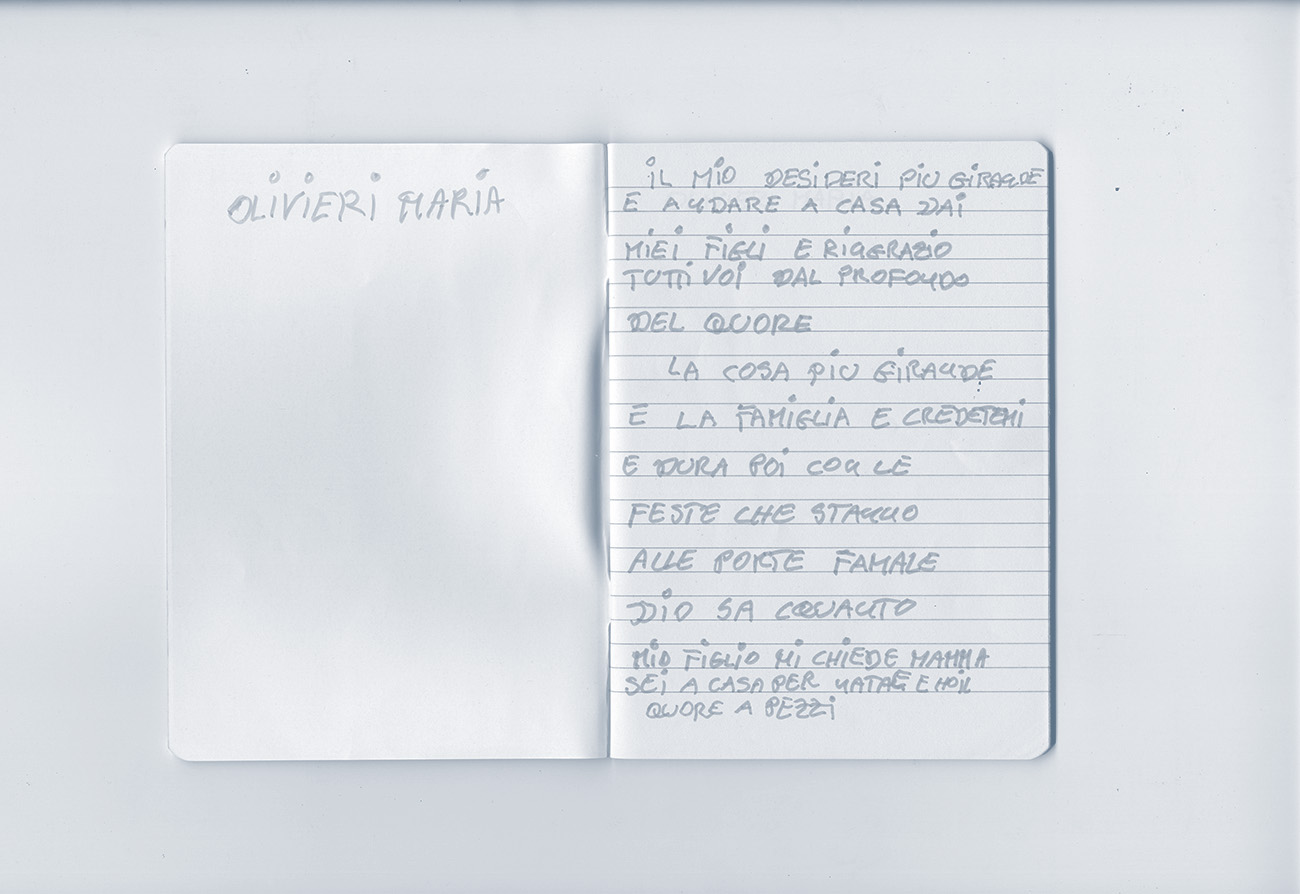 OLIVIERI MARIA
IL MIO DESIDERI PIU GIRANDE
E ANDARE A CASA DAI
MIEI FIGLI E RINGRAZIO
TUTTI VOI DAL PROFONDO
DEL QUORE
LA COSA PIU GIRANDE
E LA FAMIGLIA E CREDETEMI
E DURA POI CON LE
FESTE CHE STANNO
ALLE PORTE FAMALE
DIO SA CQUANTO
MIO FIGLIO MI CHIEDE MAMMA
SEI A CASA PER NATALE E HO IL
QUORE A PEZZI